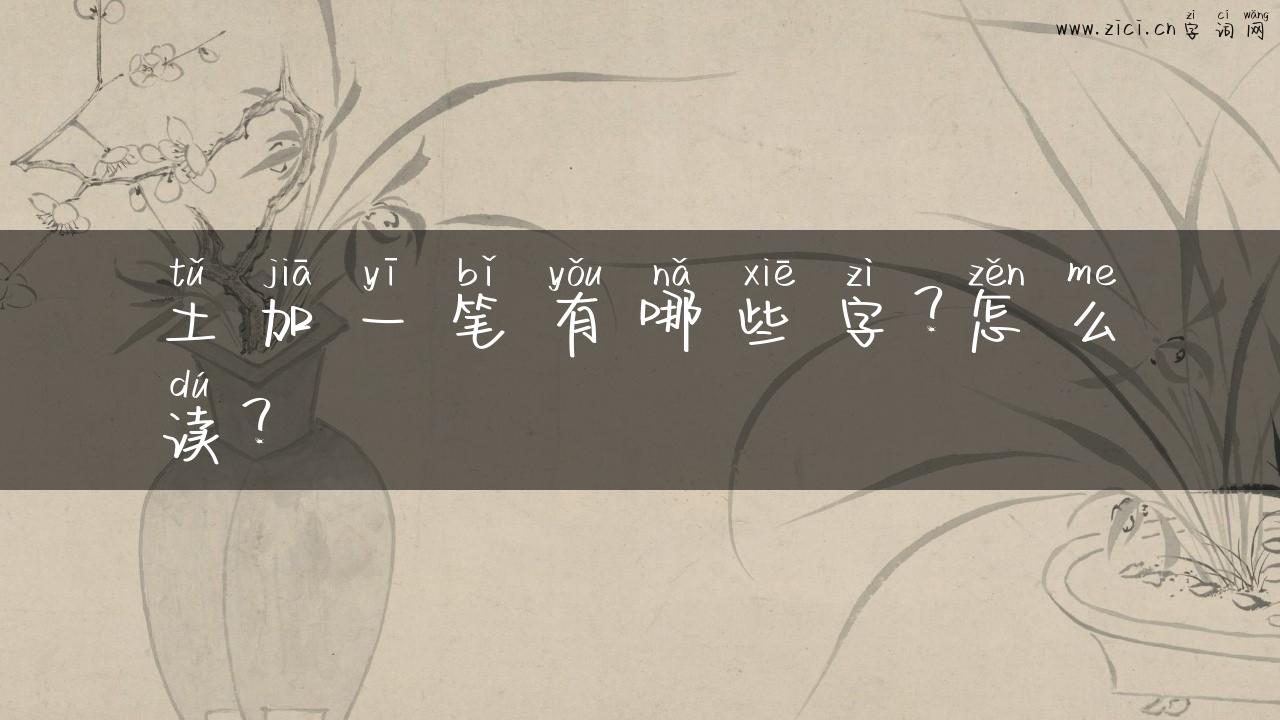 www.zici.cn 字词网
zì cí wǎng
tǔ jiā yī bǐ yǒu nǎ xiē zì zěn me
土加一笔有哪些字？怎么
dú
读？